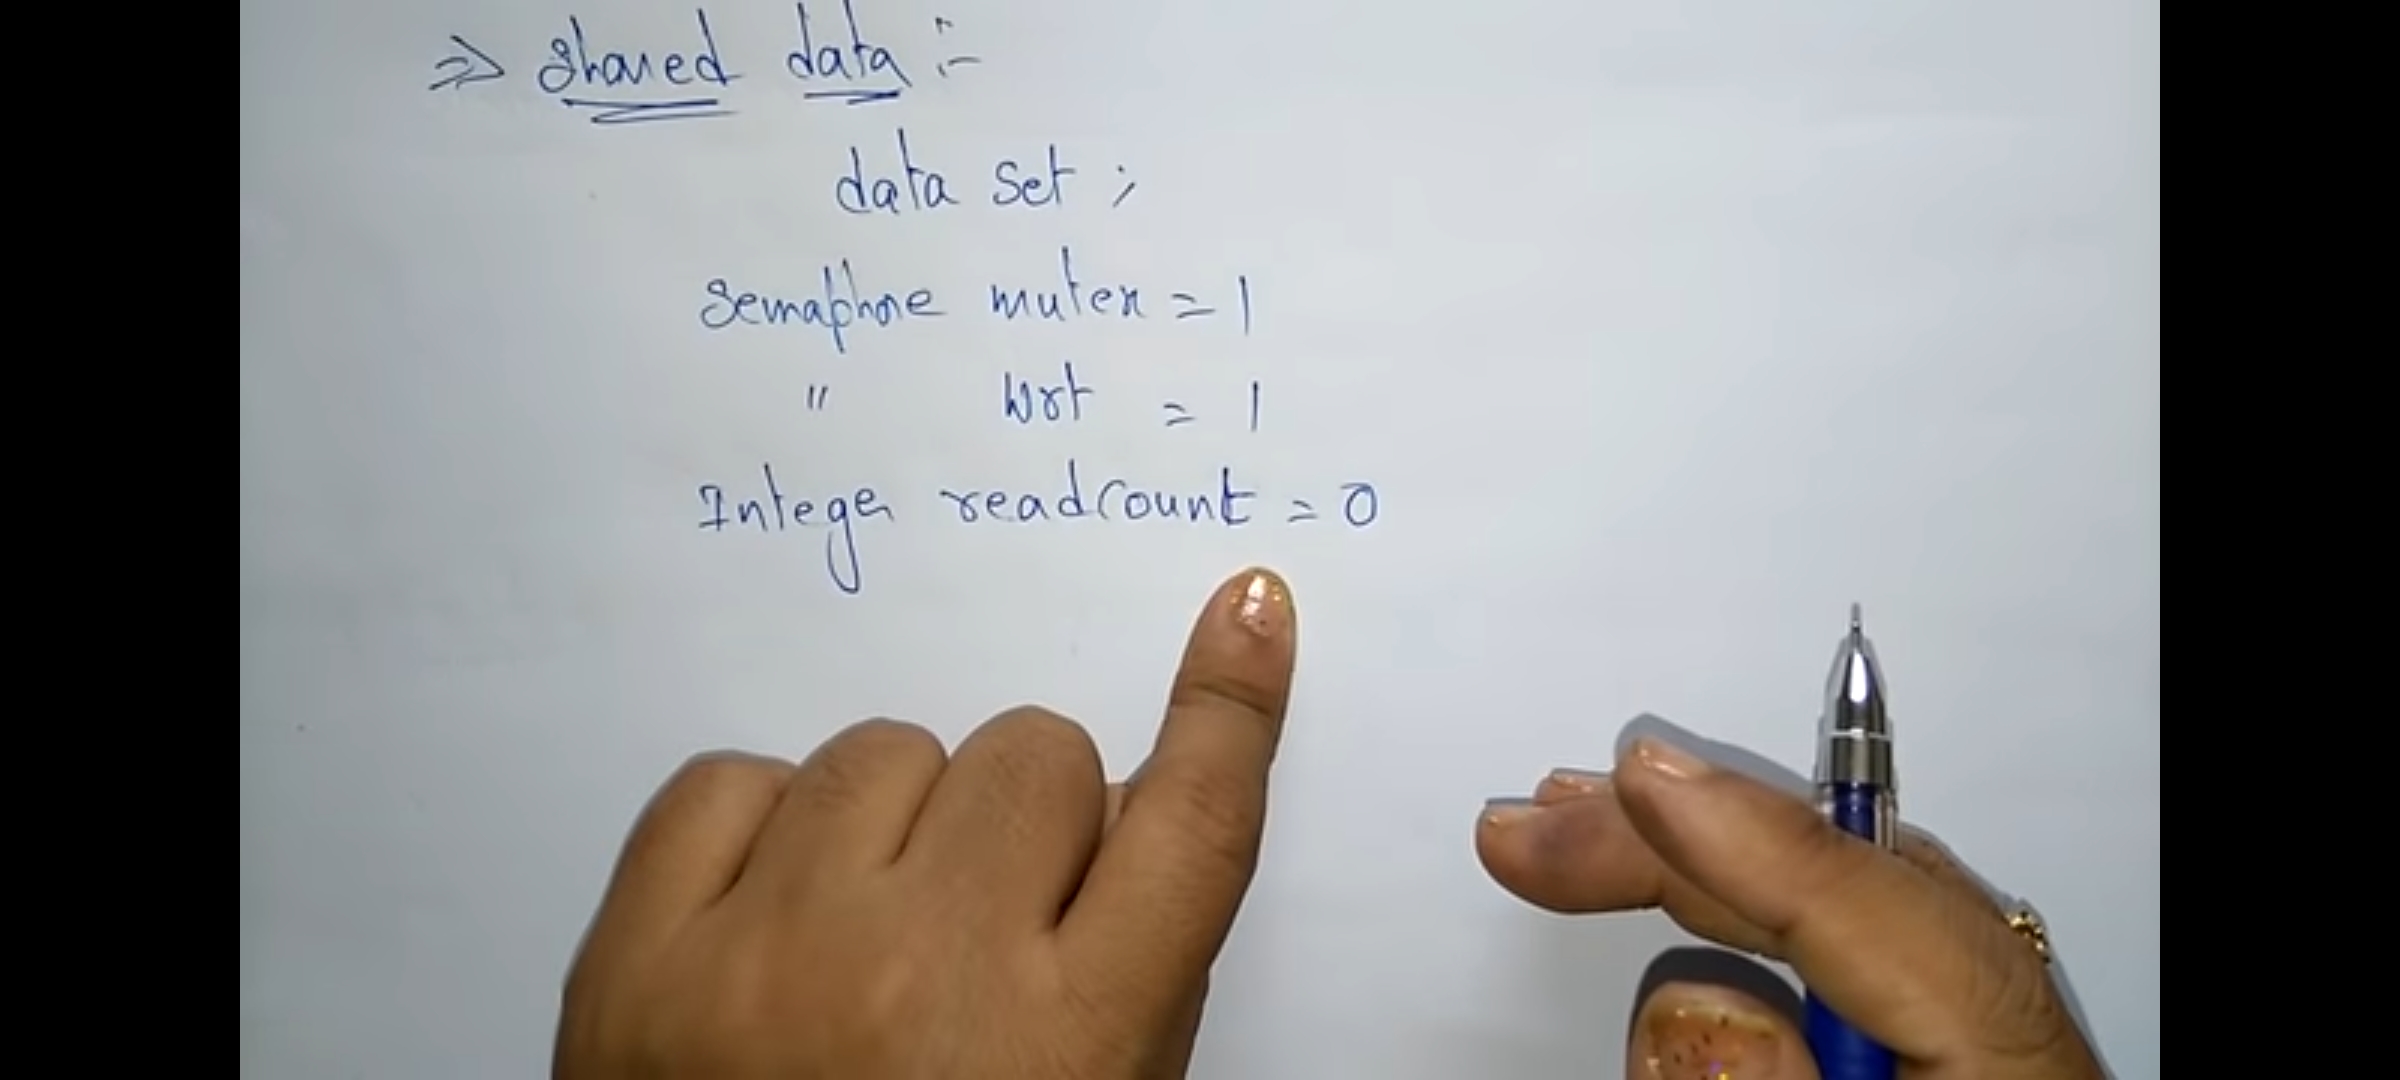 ⇒ Shared data :-
data set ;
Semaphore mutex = 1
" wrt = 1
Integer readcount = 0